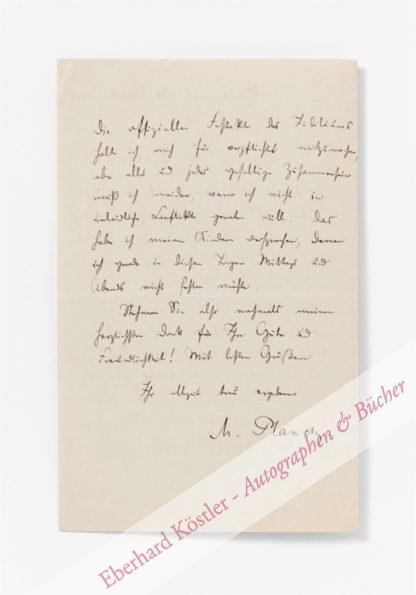 Die offiziellen Festakte des Jubiläums
halte ich mich für verpflichtet mitzumachen,
aber alles und jedes gesellige Zusammensein
muß ich meiden, wenn ich nicht in
Conflikte geraten will. Das
habe ich meinen Kindern versprochen, denen
ich gerade in diesen Tagen Mittags und
Abends nicht fehlen möchte.
Nehmen Sie also nochmals meinen
herzlichsten Dank für Ihre Güte und
Freundlichkeit! Mit besten Grüßen
Ihr allzeit treu ergebener
M. Planck
Eberhard Köstler - Autographen & Bücher